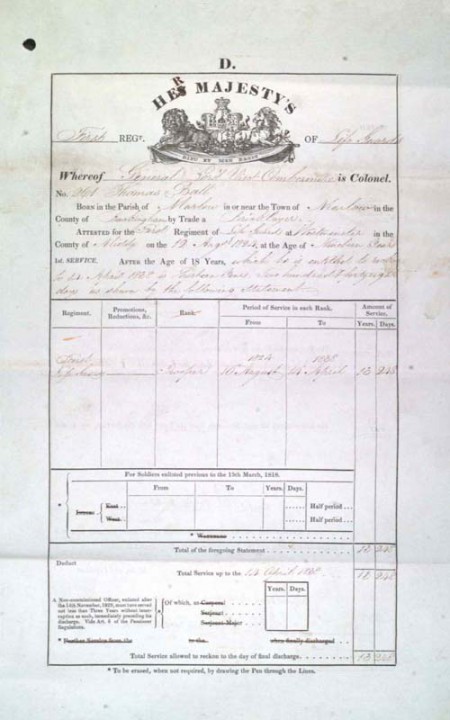 D.
HER MAJESTY'S
First REGT. OF Life Guards
Whereof General Visct Combermere is Colonel.
No. 361 Thomas Ball
BORN in the Parish of Marlow in or near the Town of Marlow in the
County of Buckingham by Trade a Bricklayer
ATTESTED for the First Regiment of Life Guards at Westminster in the
County of on the Augt 1824, at the Age of Nineteen Years
1st. SERVICE. AFTER the Age of 18 Years, which he is entitled to reckon
to 14 April 1838 is Thirteen Years Two hundred & forty eight
days as shewn by the following statement
Regiment. Promotions, Reductions, &c. Rank Period of Service in each Rank. Amount of Service.
From To Years. Days.
1824 1838
First
Trooper August 14 April 13 248
For Soldiers enlisted previous to the 15th March, 1818.
From To Years. Days.
* East Half period
West Half period
* Waterloo
Total of the foregoing Statement 13 248
Deduct
Total Service up to the 14 April 1838 13 248
Years. Days.
A Non-commissioned Officer, enlisted after
the 14th November, 1829, must have served
not less than Three Years without inter-
ruption as such, immediately preceding his
discharge. Vide Art. 8 of the Pensions
Regulations.
Of which, as Corporal
Serjeant
Serjeant-Major
* Further Service from the to the when finally discharged
Total Service allowed to reckon to the day of final discharge 13 248
* To be erased, when not required, by drawing the Pen through the Lines.